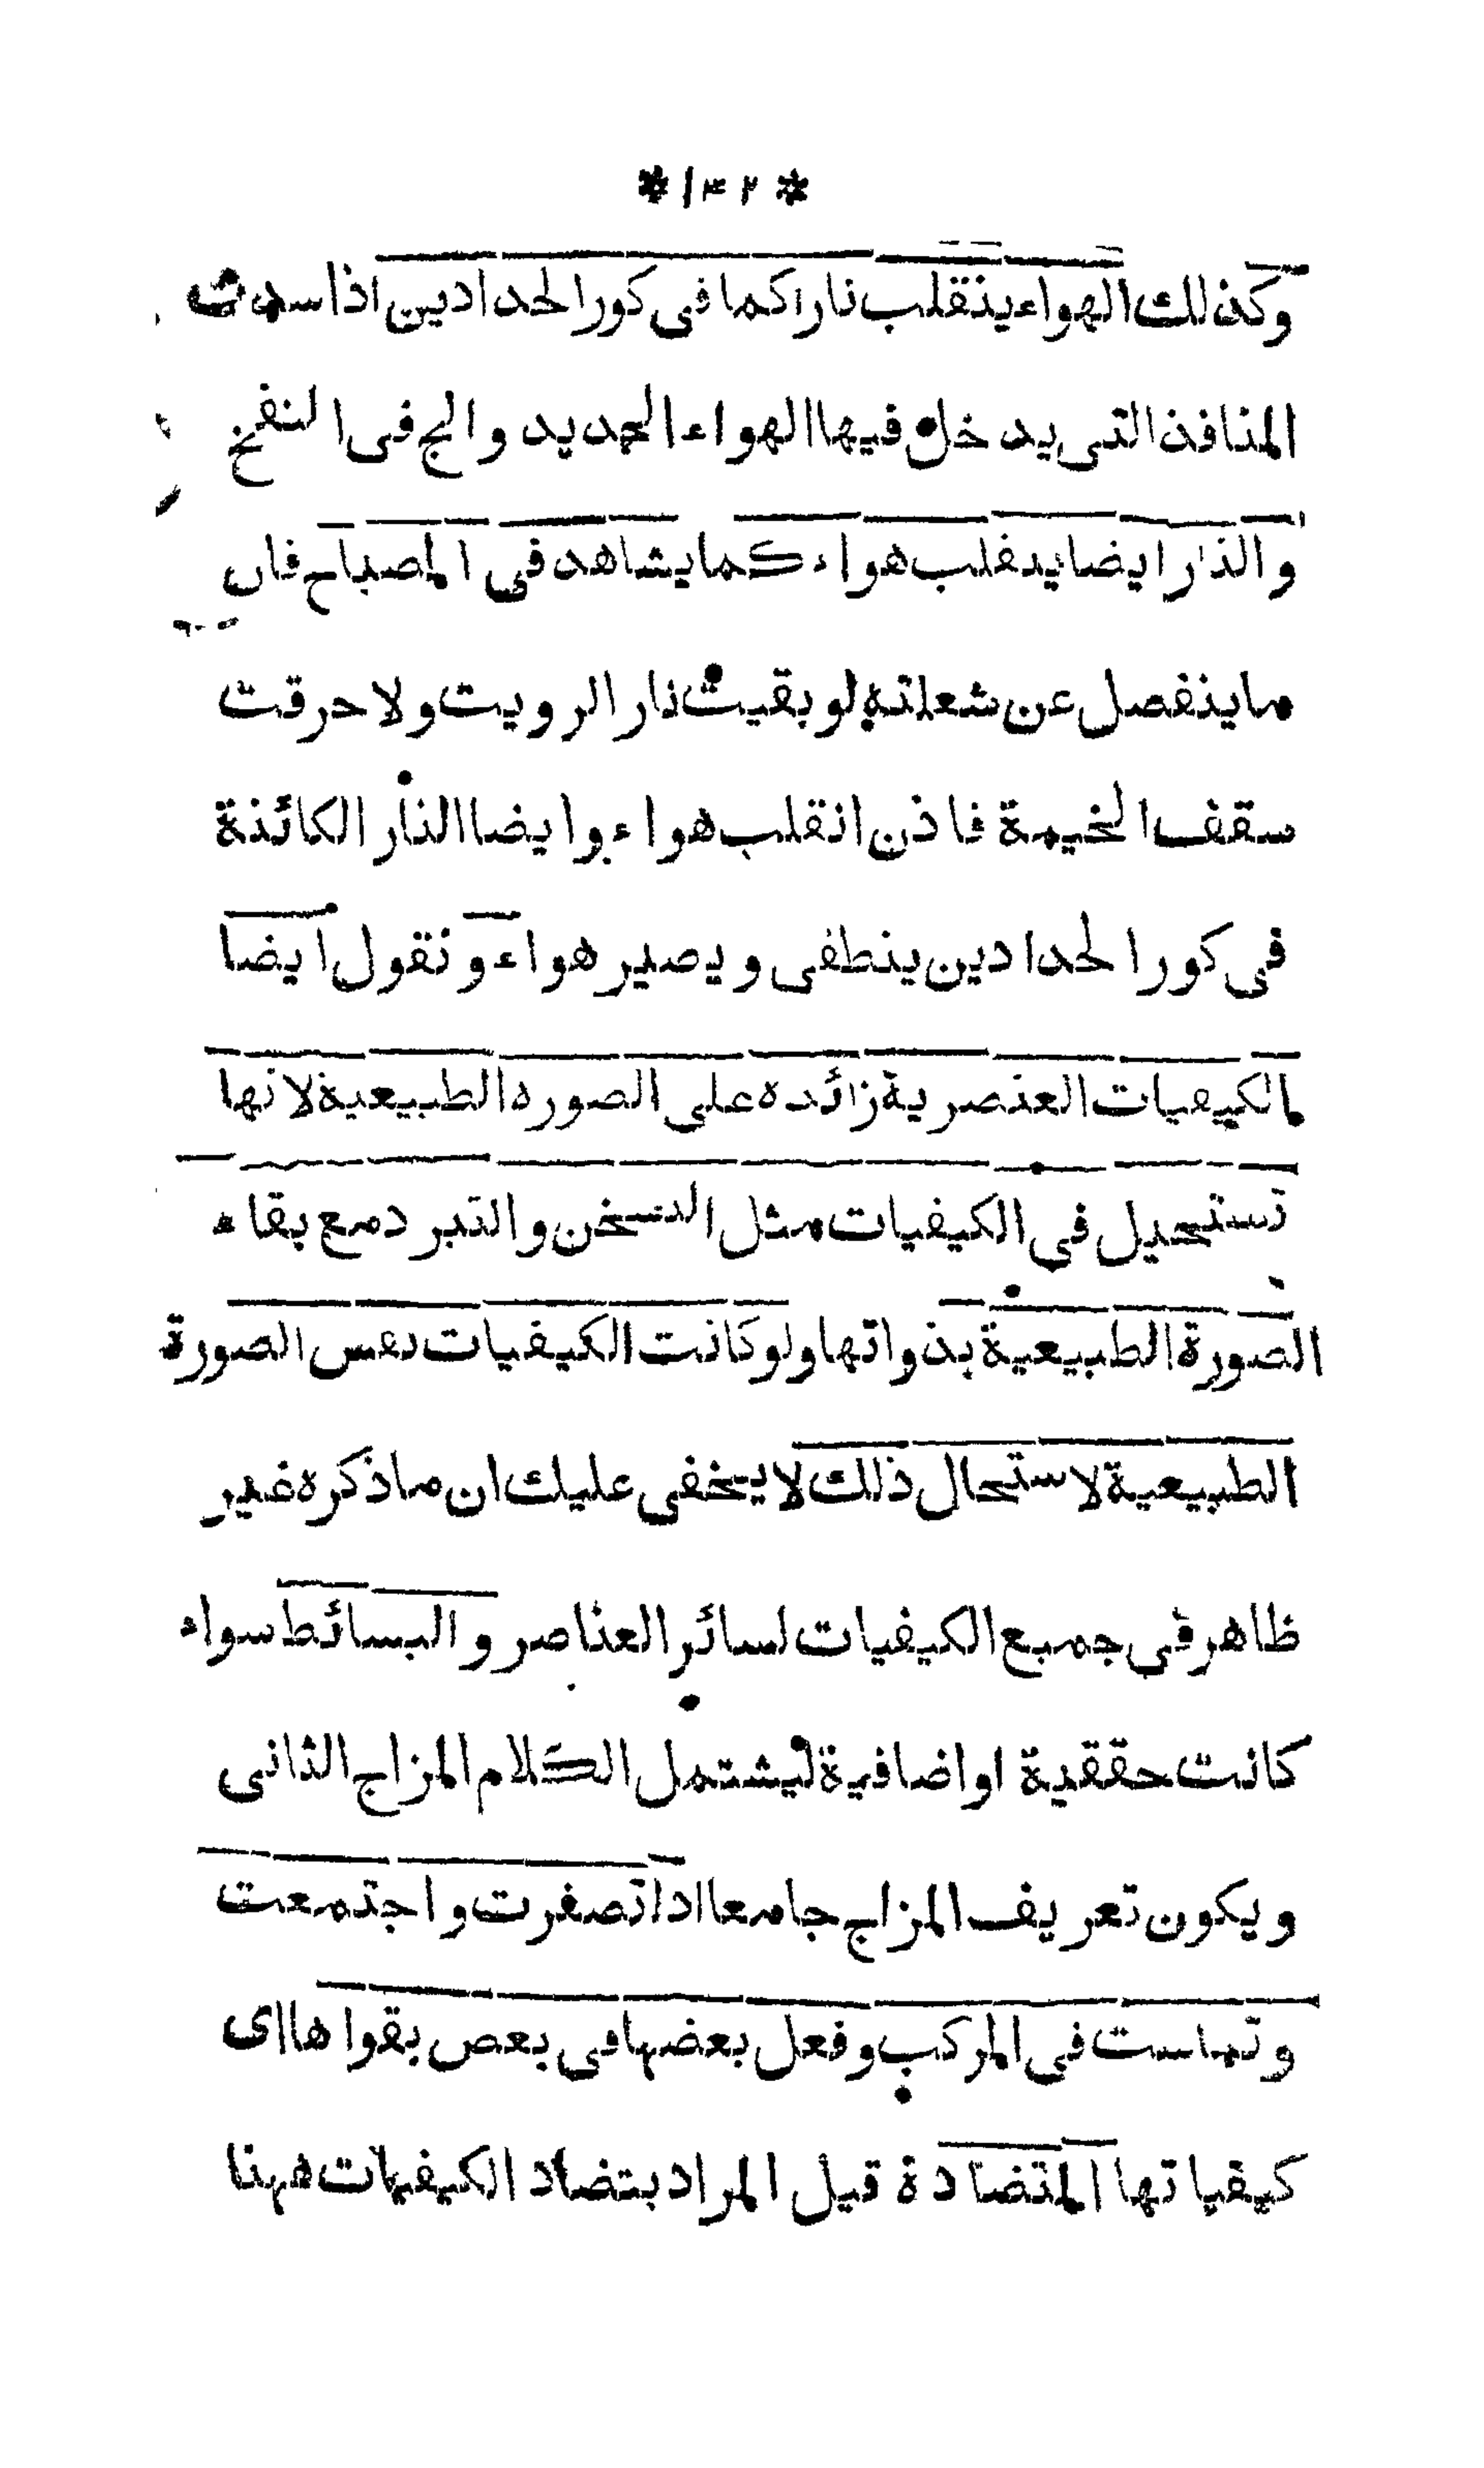 * ١٣٢ *
وكذلك الهواء ينقلب نارا كما في كور الحدادين اذا سدت
المنافذ التي يدخل فيها الهواء الجديد والج في النفخ
والنار ايضا ينقلب هواء كما يشاهد في المصباح فان
ما ينفصل عن شعلته لو بقيت نار الرويت ولاحرقت
سقف الخيمة فاذن انقلب هواء وايضا النار الكائنة
في كور الحدادين ينطفى ويصير هواء ونقول ايضا
الكيفيات العنصرية زائده على الصوره الطبيعية لانها
تستحيل في الكيفيات مثل التسخن والتبرد مع بقاء
الصورة الطبيعية بذواتها ولو كانت الكيفيات نفس الصورة
الطبيعية لاستحال ذلك لا يخفى عليك ان ما ذكره غير
ظاهر في جميع الكيفيات لسائر العناصر والبسائط سواء
كانت حققية او اضافية ليشتمل الكلام المزاج الثانى
ويكون تعريف المزاج جامعا اذا تصغرت واجتمعت
وتماست في المركب وفعل بعضها في بعض بقواها اى
كيفياتها المتضادة قيل المراد بتضاد الكيفيات ههنا